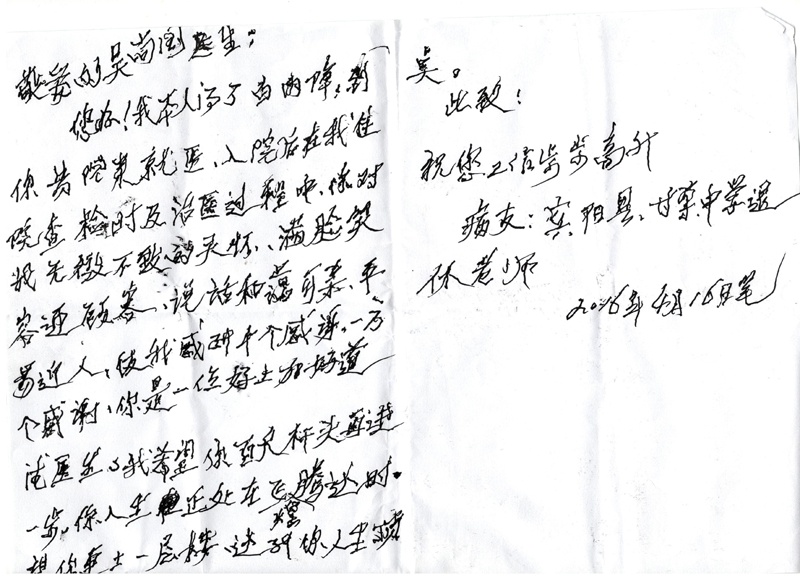 敬爱的吴尚团医生：
您好！我本人得了
你贵院来就医，入院后在我准
候查检时及治医过程中，你对
我无微不致的关怀、满脸笑
容迎顾客、说话和蔼可亲、平
易近人，使我感到千个感谢、一万
个感谢，你是一位好上加好道
医生。我希望你百尺杆头再进
一步。你人生正处在飞腾达时。
祝你更上一层楼、达到你人生
美。
此致！
祝您工作步步高升
病友：宾阳县、甘棠中学退
休老师
2016年 月16日笔